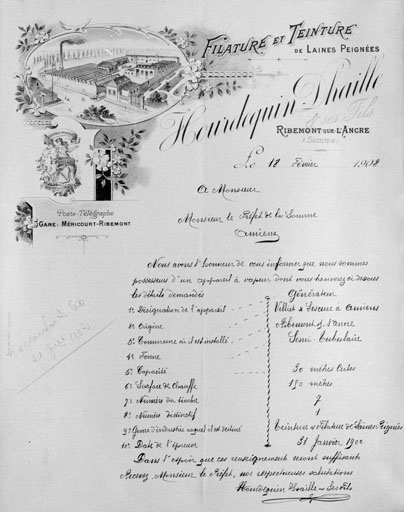 FILATURE ET TEINTURE
DE LAINES PEIGNÉES
Hourdequin Dhaille
& ses Fils
RIBEMONT-SUR-L'ANCRE
(SOMME)
Le 18 Février 1902
Poste-Télégraphe
GARE: MÉRICOURT-RIBEMONT
A Monsieur
Monsieur le Préfet de la Somme
Amiens
Nous avons l'honneur de vous informer que nous sommes
possesseurs d'un appareil à vapeur dont vous trouverez ci-dessous
les détails demandés
1º Désignation de l'appareil Générateur
2º Origine à Amiens
3º Commune où il est installé Ribemont s/ Ancre
4º Forme Semi-Tubulaire
5º Capacité 30 mètres cubes
6º Surface de Chauffe 150 mètres
7º Numéro du timbre 7
8º Numéro distinctif 1
9º Genre d'industrie auquel il est destiné Teinture & Filature de Laines Peignées
10º Date de l'épreuve 31 Janvier 1902
Dans l'espoir que ces renseignements seront suffisants
Recevez, Monsieur le Préfet, nos respectueuses salutations
Hourdequin Dhaille & ses Fils